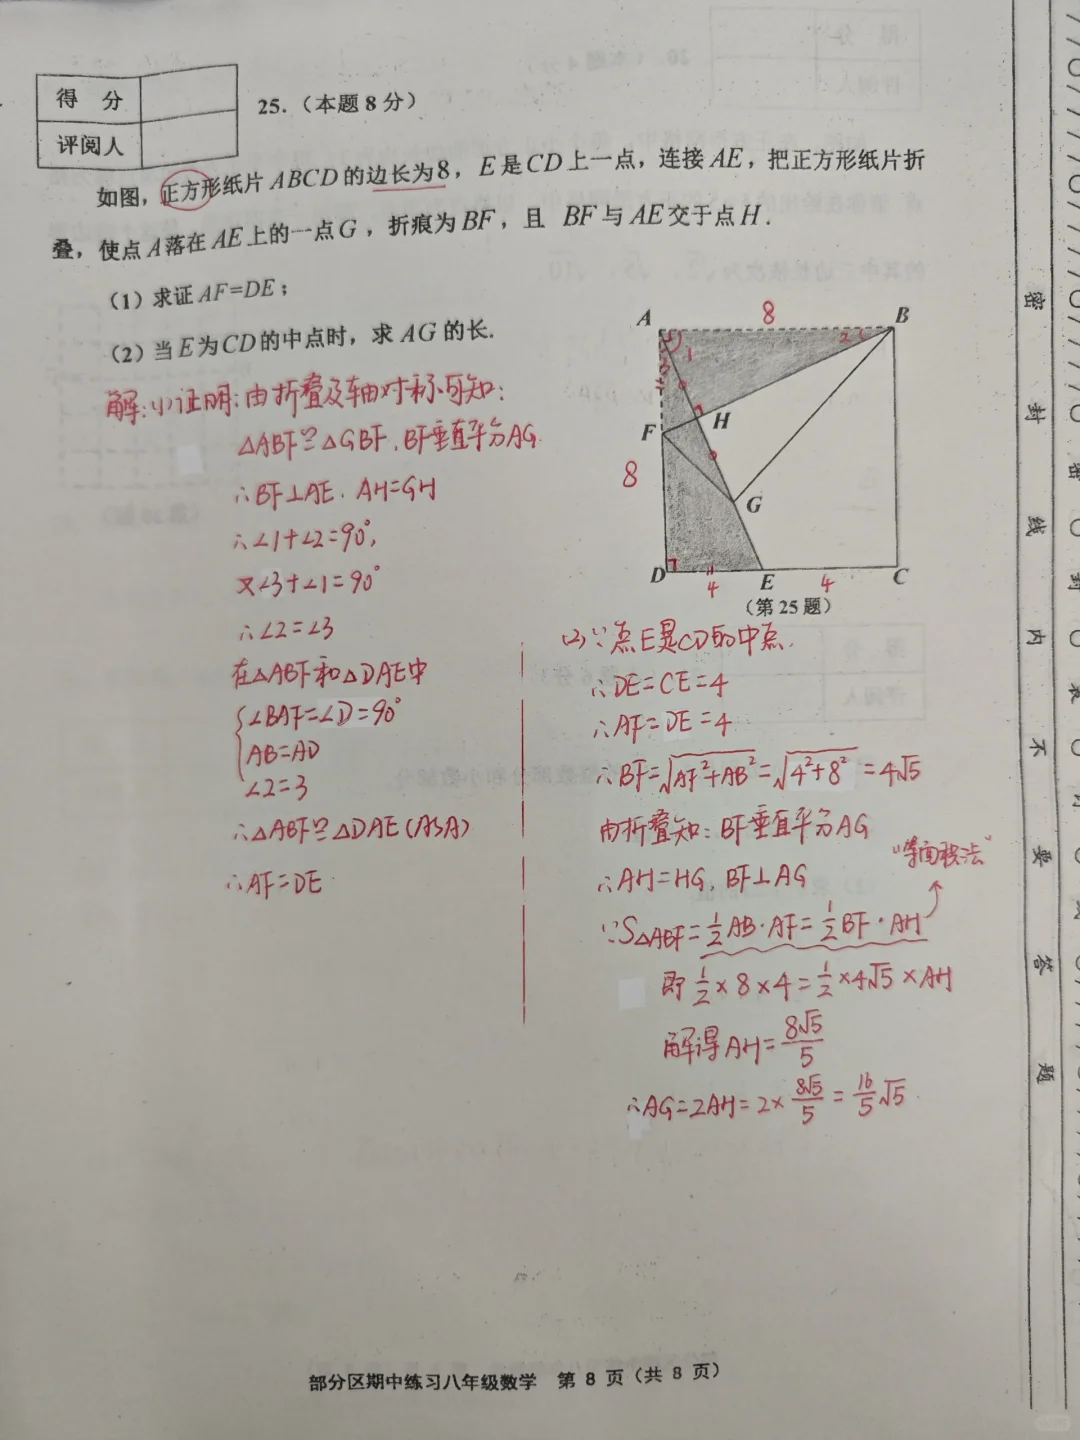 得 分
评阅人
25.（本题8分）
如图，正方形纸片ABCD的边长为8，E是CD上一点，连接AE，把正方形纸片折
叠，使点A落在AE上的一点G，折痕为BF，且 BF与AE交于点H．
（1）求证AF=DE；
（2）当E为CD的中点时，求 AG 的长.
解:(1)证明:由折叠及轴对称可知:
△ABF≌△GBF.BF垂直平分AG.
∴BF⊥AE. AH=GH
∴∠1+∠2=90°,
又∠3+∠1=90°
∴∠2=∠3
在△ABF和△DAE中
{∠BAF=∠D=90°
AB=AD
∠2=3
∴△ABF≌△DAE(ASA)
∴AF=DE
A 8 B
1 2
3
H
F
8
G
D 4 E 4 C
（第25题）
(2)∵点E是CD的中点.
∴DE=CE=4
∴AF=DE=4
∴BF=√(AF²+AB²)=√(4²+8²)=4√5
由折叠知:BF垂直平分AG
"等面积法"
∴AH=HG,BF⊥AG
∵S△ABF=1/2AB·AF=1/2BF·AH
即 1/2×8×4=1/2×4√5×AH
解得AH=8√5/5
∴AG=2AH=2×8√5/5=16/5√5
部分区期中练习八年级数学 第 8 页（共 8 页）
密 封 线 内 不 要 答 题